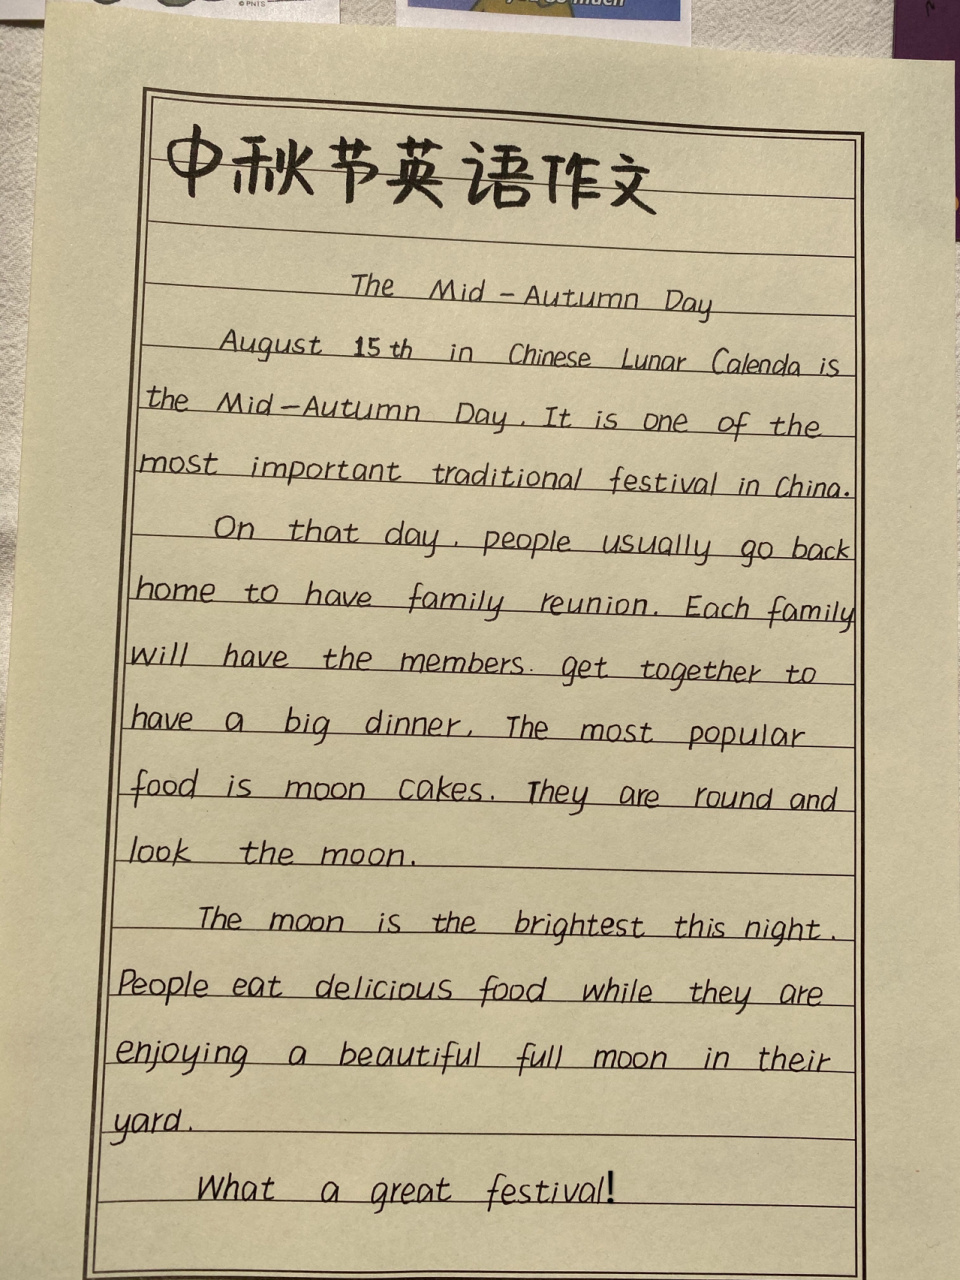 © PNTS
you so much
中秋节英语作文
The Mid-Autumn Day
August 15th in Chinese Lunar Calenda is
the Mid-Autumn Day. It is one of the
most important traditional festival in China.
On that day. people usually go back
home to have family reunion. Each family
will have the members. get together to
have a big dinner. The most popular
food is moon cakes. They are round and
look the moon.
The moon is the brightest this night.
People eat delicious food while they are
enjoying a beautiful full moon in their
yard.
What a great festival!